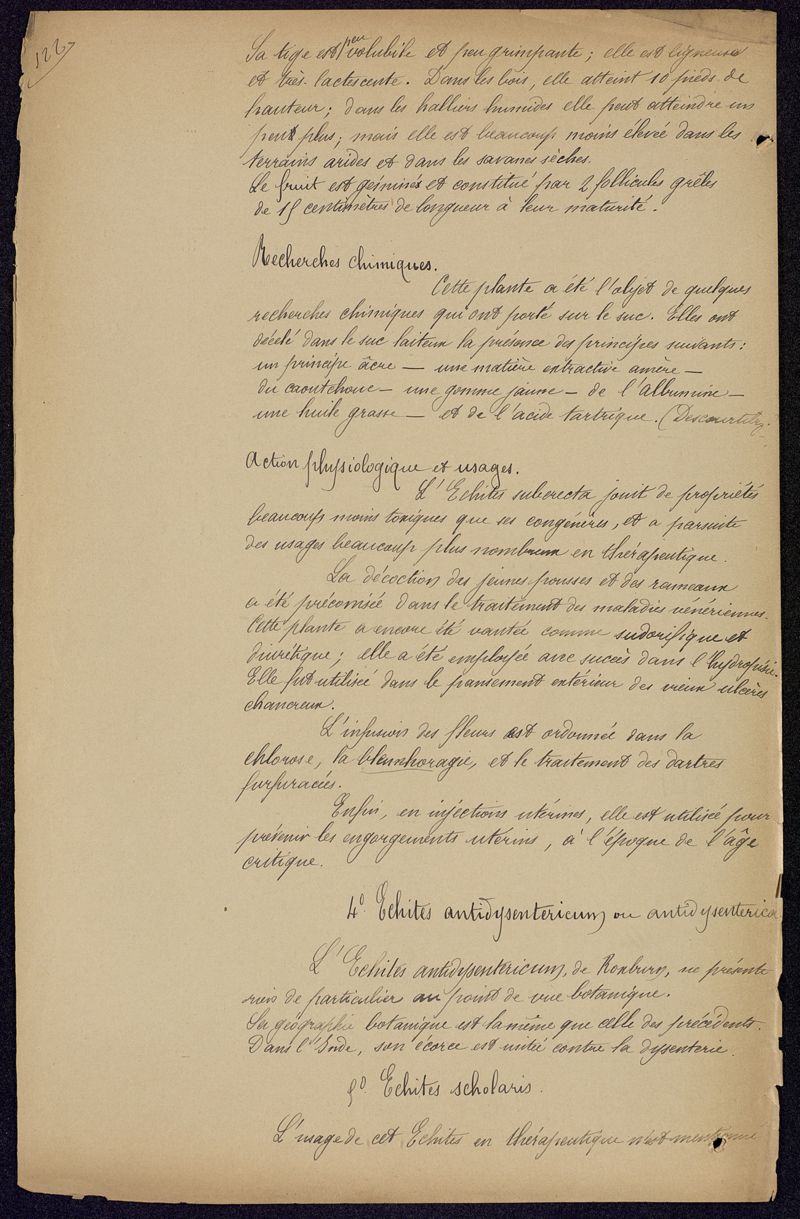 122
Sa tige est peu volubile et peu grimpante ; elle est ligneuse
et très-lactescente. Dans les bois, elle atteint 10 pieds de
hauteur ; dans les halliers humides elle peut atteindre un
peu plus ; mais elle est beaucoup moins élevée dans les
terrains arides et dans les savanes sèches.
Le fruit est géminé et constitué par 2 follicules grêles
de 15 centimètres de longueur à leur maturité.
Recherches chimiques.
Cette plante a été l'objet de quelques
recherches chimiques qui ont porté sur le suc. Elles ont
décelé dans le suc laiteux la présence des principes suivants :
un principe âcre — une matière extractive amère —
du caoutchouc — une gomme jaune — de l'Albumine —
une huile grasse — et de l'acide tartrique. (Descourtilz
Action physiologique et usages.
L'Echites suberecta jouit de propriétés
beaucoup moins toxiques que ses congénères, et a par suite
des usages beaucoup plus nombreux en thérapeutique.
La décoction des jeunes pousses et des rameaux
a été préconisée dans le traitement des maladies vénériennes.
Cette plante a encore été vantée comme sudorifique et
diurétique ; elle a été employée avec succès dans l'hydropisie.
Elle fut utilisée dans le pansement extérieur des vieux ulcères
chancreux.
L'infusion des fleurs est ordonnée dans la
chlorose, la blennhoragie, et le traitement des dartres
furfuracées.
Enfin, en injections utérines, elle est utilisée pour
prévenir les engorgements utérins, à l'époque de l'âge
critique.
4º. Echites antidysentericum ou antidysenterica
L'Echites antidysentericum, de Roxburg, ne présente
rien de particulier au point de vue botanique.
Sa géographie botanique est la même que celle des précédents.
Dans l'Inde, son écorce est usitée contre la dysenterie.
5º. Echites scholaris.
L'usage de cet Echites en thérapeutique n'est mentionné